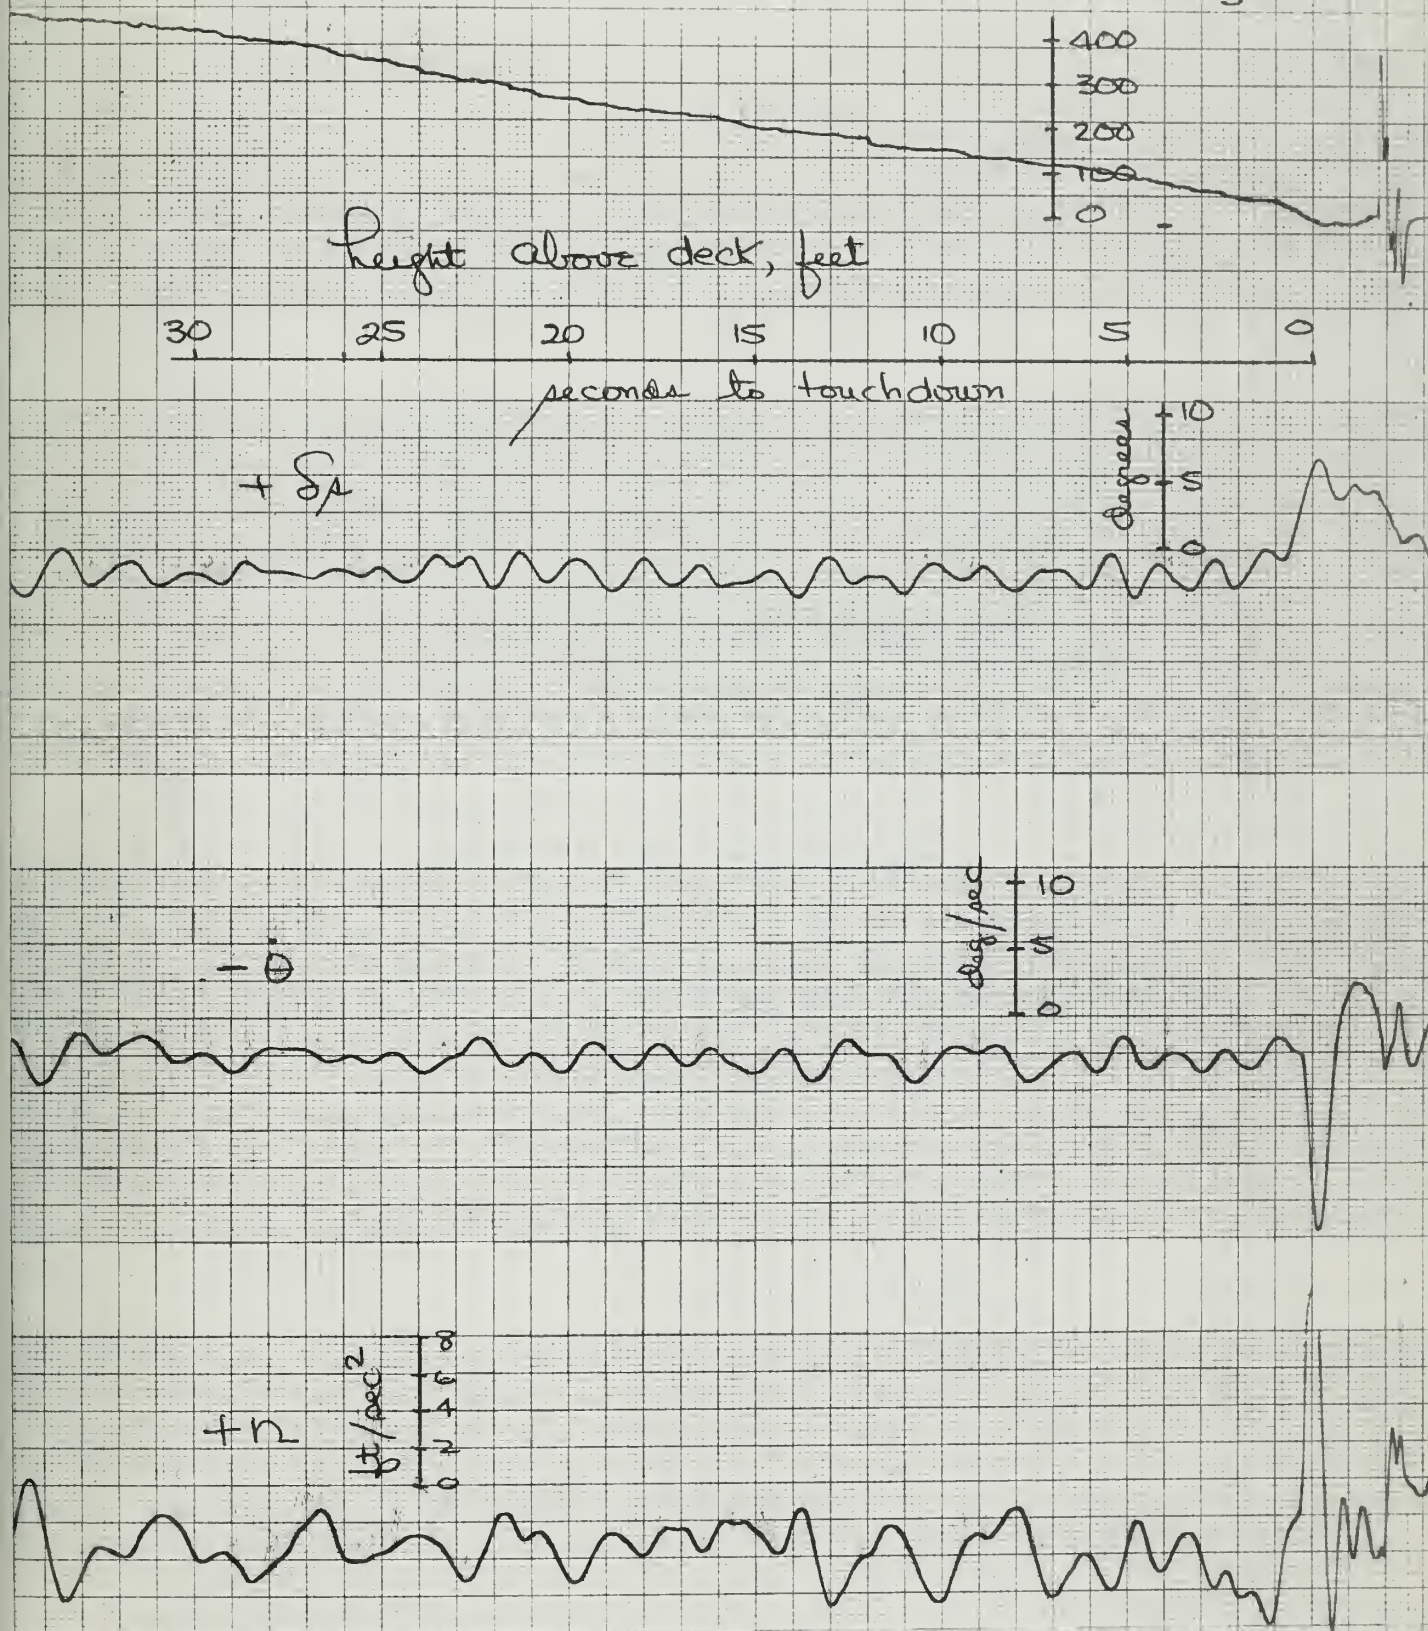 400
300
200
100
0
height above deck, feet
30 25 20 15 10 5 0
seconds to touchdown
degrees
10
5
0
+ δs
deg/sec
10
5
0
- θ̇
ft/sec²
8
6
4
2
0
+n